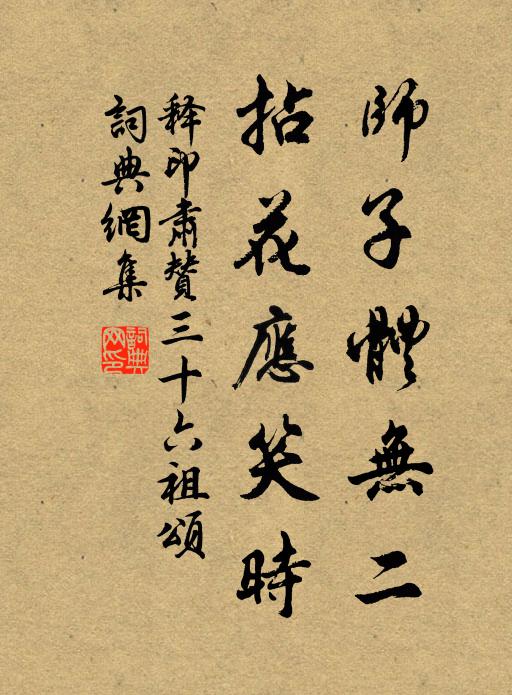 師子體無二
拈花應笑時
釋印肅贊三十六祖頌
詞典網集
詞典网印